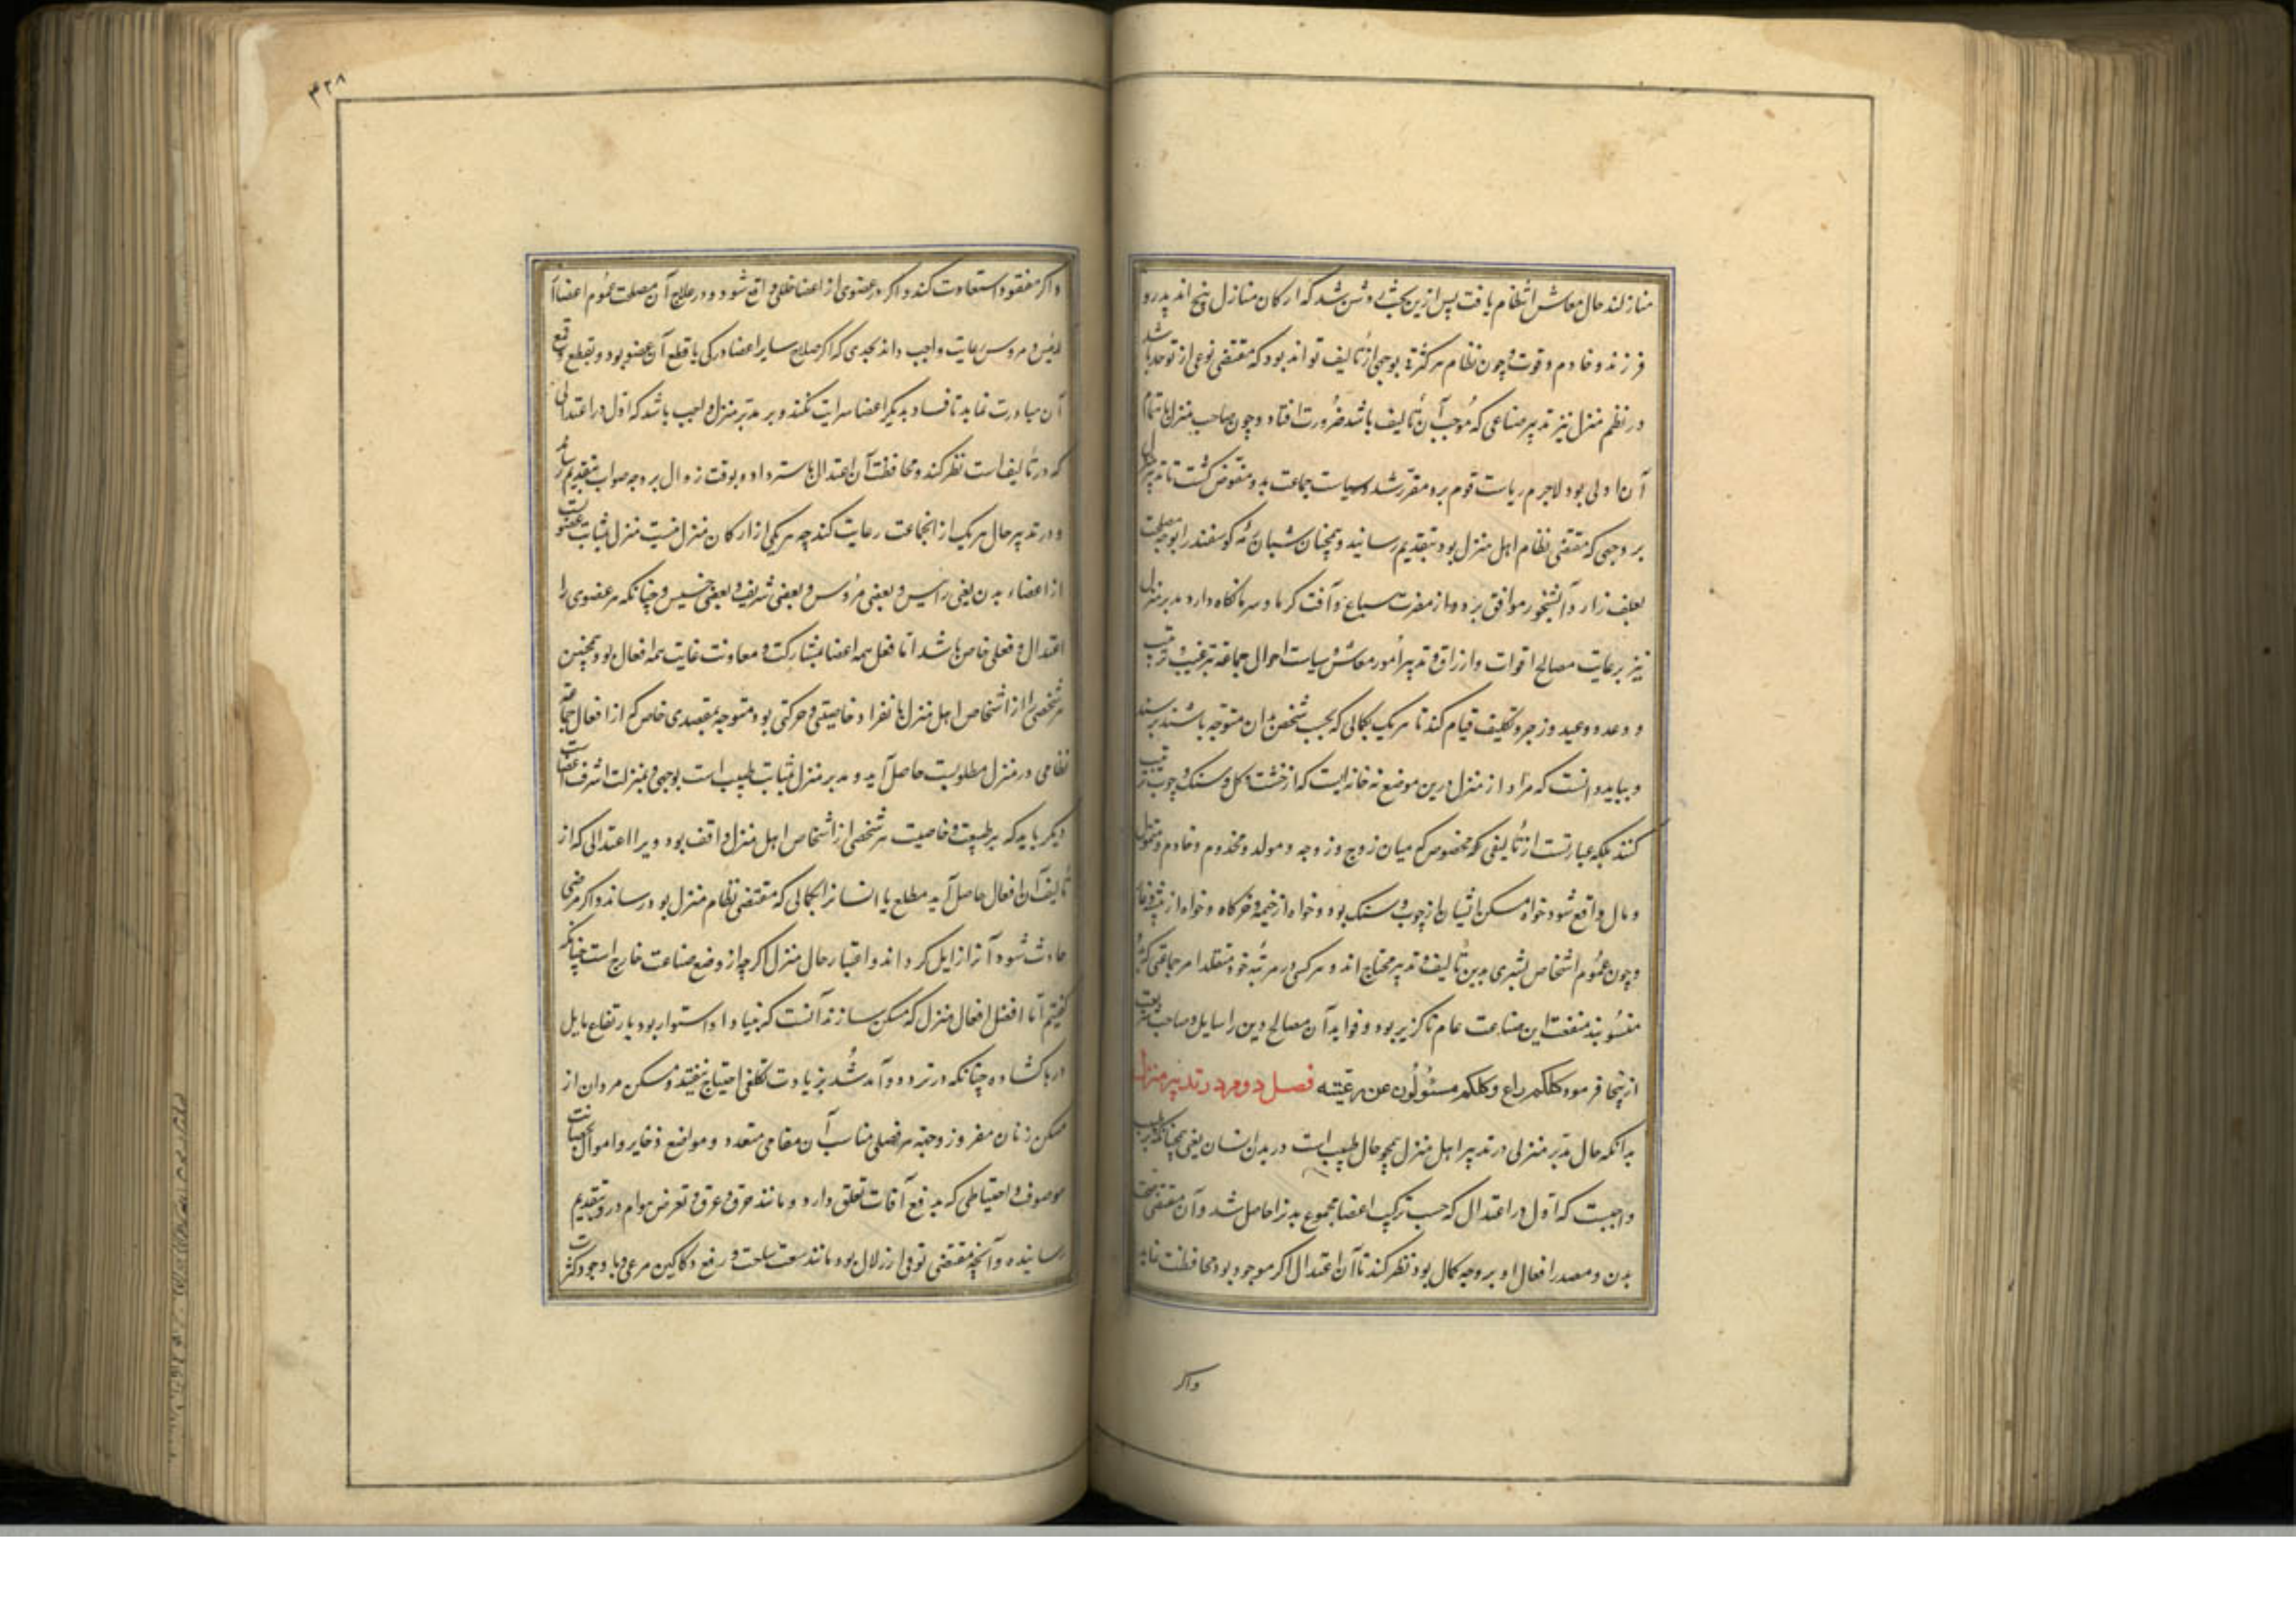 منازلند حال معاش انتظام یافت پس ازین بحث روشن شد که ارکان منازل پنج اند پدر و
فرزند و خادم و قوت و چون نظام هر کثرة بوجهی از تألیف تواند بود که مقتضی نوعی از توحد باشد
در نظم منزل نیز تدبیر صناعی که موجب آن تألیف باشد ضرورت افتاد و چون صاحب منزل باهتمام
آن اولی بود لاجرم ریاست قوم برو مقرر شد و سیاست جماعت بدو مفوض گشت تا تدبیر
بر وجهی که مقتضی نظام اهل منزل بود بتقدیم رسانید و همچنان شبان رمه گوسفند را بوجه مصلحت
بعلف زار و آبشخور موافق برد و از مضرت سباع و آفت گرما و سرما نگاه دارد مدبر منزل
نیز برعایت مصالح اقوات و ارزاق و تدبیر امور معاش و سیاست احوال جماعة بترغیب و ترتیب
و وعد و وعید و زجر و تکلیف قیام کند تا هر یک بکمالی که بحسب شخص بدان متوجه باشند برسند
و بباید دانست که مراد از منزل درین موضع نه خانه ایست که از خشت و گل و سنگ و چوب ترتیب
کنند بلکه عبارتست از تألیفی که مخصوص میان زوج و زوجه و مولد و مخدوم و خادم و متمول
و مال واقع شود خواه مسکن ایشان از چوب و سنگ بود و خواه از خیمه و خرگاه و خواه از
و چون عموم اشخاص بشری بدین تألیف و تدبیر محتاج اند و هر کس در مرتبه خود متقلد امر جماعتی که بدو
منسوبند منفعت این صناعت عام ناگزیر بود و فواید آن مصالح دین را سایل و صاحب شریعت
از ینجا فرمود کلکم راع وکلکم مسئولون عن رعیته فصل دوم در تدبیر منزل
بدانکه حال مدبر منزلی در تدبیر اهل منزل همچو حال طبیب است در بدن انسان یعنی همچنانکه بر طبیب
واجبست که اول در اعتدال که حسب ترکیب اعضا مجموع بدن را حاصل شد و آن مقتضی
بدن و مصدر افعال او بر وجه کمال بود نظر کند تا آن اعتدال اگر موجود بود محافظت نماید
واگر
۴۲۸
و اگر مفقود استعادت کند و اگر در عضوی از اعضا خللی واقع شود و در علاج آن مصلحت عموم اعضا
رئیس و مرؤس رعایت واجب داند بحدی که اگر صلاح سایر اعضا در کی یا قطع آن عضو بود و بقطع و قمع
آن مبادرت نماید تا فساد بدیگر اعضا سرایت نکند و بر مدبر منزل واجب باشد که اول در اعتدالی
که در تألیف است نظر کند و محافظت آن اعتدال و استرداد و بوقت زوال بر وجه صواب بتقدیم رساند
و در تدبیر حال هر یک از آنجماعت رعایت کند چه هر یکی از ارکان منزل نسبت منزل بمثابت عضو
از اعضاء بدن یعنی رئیس و بعضی مرؤس و بعضی شریف و بعضی خسیس و چنانکه هر عضوی را
اعتدال و فعلی خاص باشد اما فعل همه اعضا بمشارکت و معاونت غایت همه افعال بود همچنین
هر شخصی را از اشخاص اهل منزل بانفراد خاصیتی و حرکتی بود متوجه بمقصدی خاص که از افعال جماعة
نظامی در منزل مطلوبست حاصل آید و مدبر منزل بمثابت طبیب است بوجهی و بمنزلت اشرف اعضاست
دیگر باید که بر طبیعت و خاصیت هر شخصی از اشخاص اهل منزل واقف بود و برا اعتدالی که از
تألیف آن افعال حاصل آید مطلع تا ایشانرا بکمالی که مقتضی نظام منزل بود رساند و اگر مرضی
حادث شود آنرا زایل گرداند و اعتبار حال منزل اگرچه از وضع صناعت خارج است چنانکه
گفتیم اما افضل افعال منزل که مسکن سازند آنست که بنیاد او استوار بود با رتفاع مایل
درها گشاده چنانکه در تردد و آمد شد بزیادت تکلفی احتیاج نیفتد و مسکن مردان از
مسکن زنان مفروز و جهة هر فصلی مناسب آن مقامی متعدد و مواضع ذخایر و اموال بحصانت
موصوف و احتیاطی که بدفع آفات تعلق دارد و مانند حرق و غرق و تعرض هوام درو بتقدیم
رسانیده و آنچه مقتضی توقی از زلازل بود مانند سعت ساحت و رفع دکاکین مرعی و با وجود کثرت